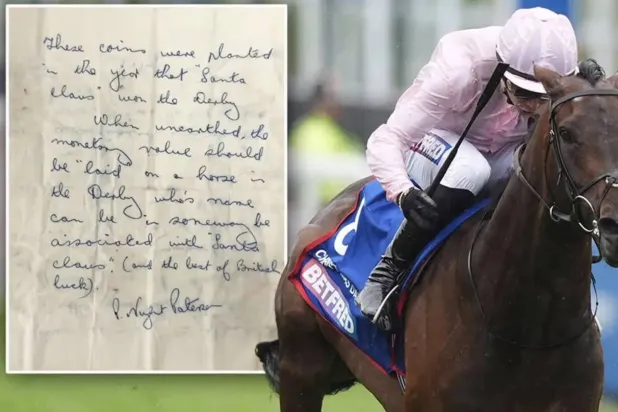 These coins were planted
in the year that "Santa
Claus" won the Derby
When unearthed, the
monetary value should
be "laid" on a horse in
the Derby who's name
can be in someway be
associated with "Santa
Claus" (and the best of British
luck).
BETFRED
BETFRED